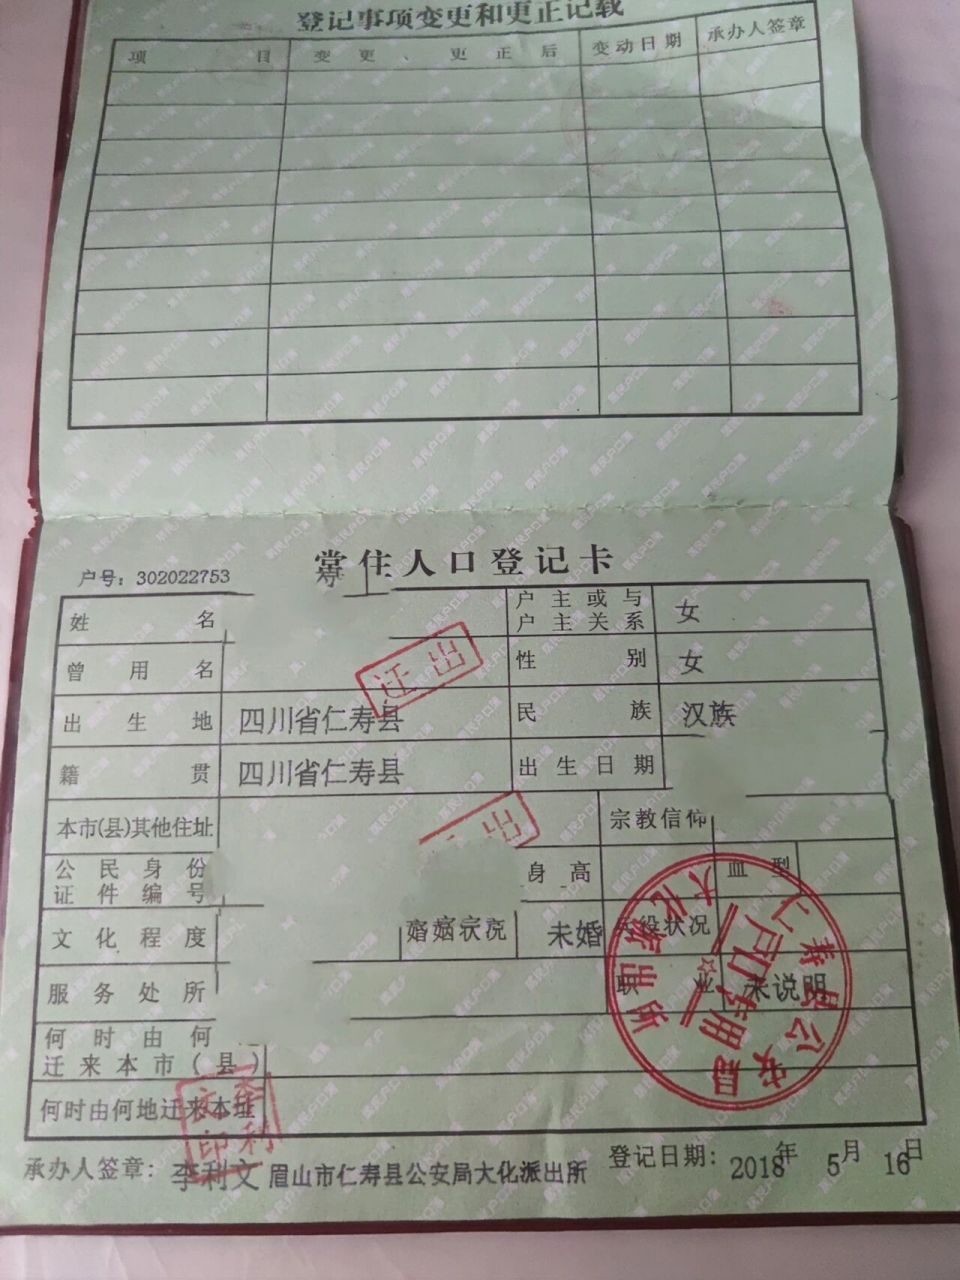 登记事项变更和更正记载
项 目 变 更 、 更 正 后 变动日期 承办人签章
常住人口登记卡
户号：302022753
姓 名 户主或与户主关系 女
曾 用 名 性 别 女
迁出
出 生 地 四川省仁寿县 民 族 汉族
籍 贯 四川省仁寿县 出生日期
本市(县)其他住址 宗教信仰
出
公民身份证件编号 身 高 血 型
文化程度 婚姻状况 未婚 兵役状况
服务处所 职 业 未说明
户口专用
何时由何
迁来本市(县)
何时由何地迁来本址
李利文印
承办人签章：李利文 眉山市仁寿县公安局大化派出所 登记日期：2018年 5月 16日